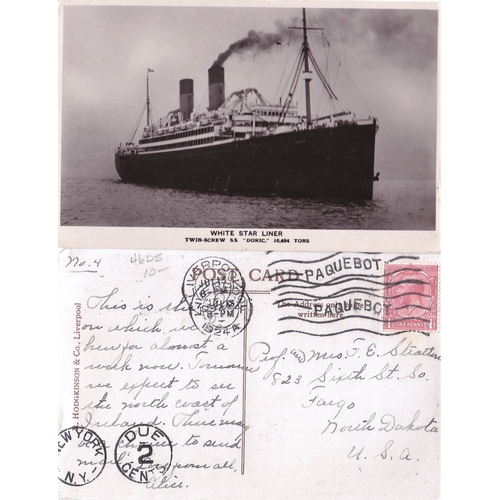 WHITE STAR LINER
TWIN-SCREW S.S. "DORIC," 16,484 TONS
No. 4
46DS
10-
POST CARD
LIVERPOOL
PAQUEBOT
PAQUEBOT
The Address
written here
ONE PENNY
HODGKINSON & Co., Liverpool
This is the
on which, we
been for almost a
week now. Tomorrow
we expect to see
the north coast of
Ireland. There may
be a chance to send
mail. Love to you all,
Alice.
Prof. and Mrs. F. E. Stratton
823 Sixth St. So.
Fargo
North Dakota
U. S. A.
NEW YORK
N.Y.
DUE
2
CEN